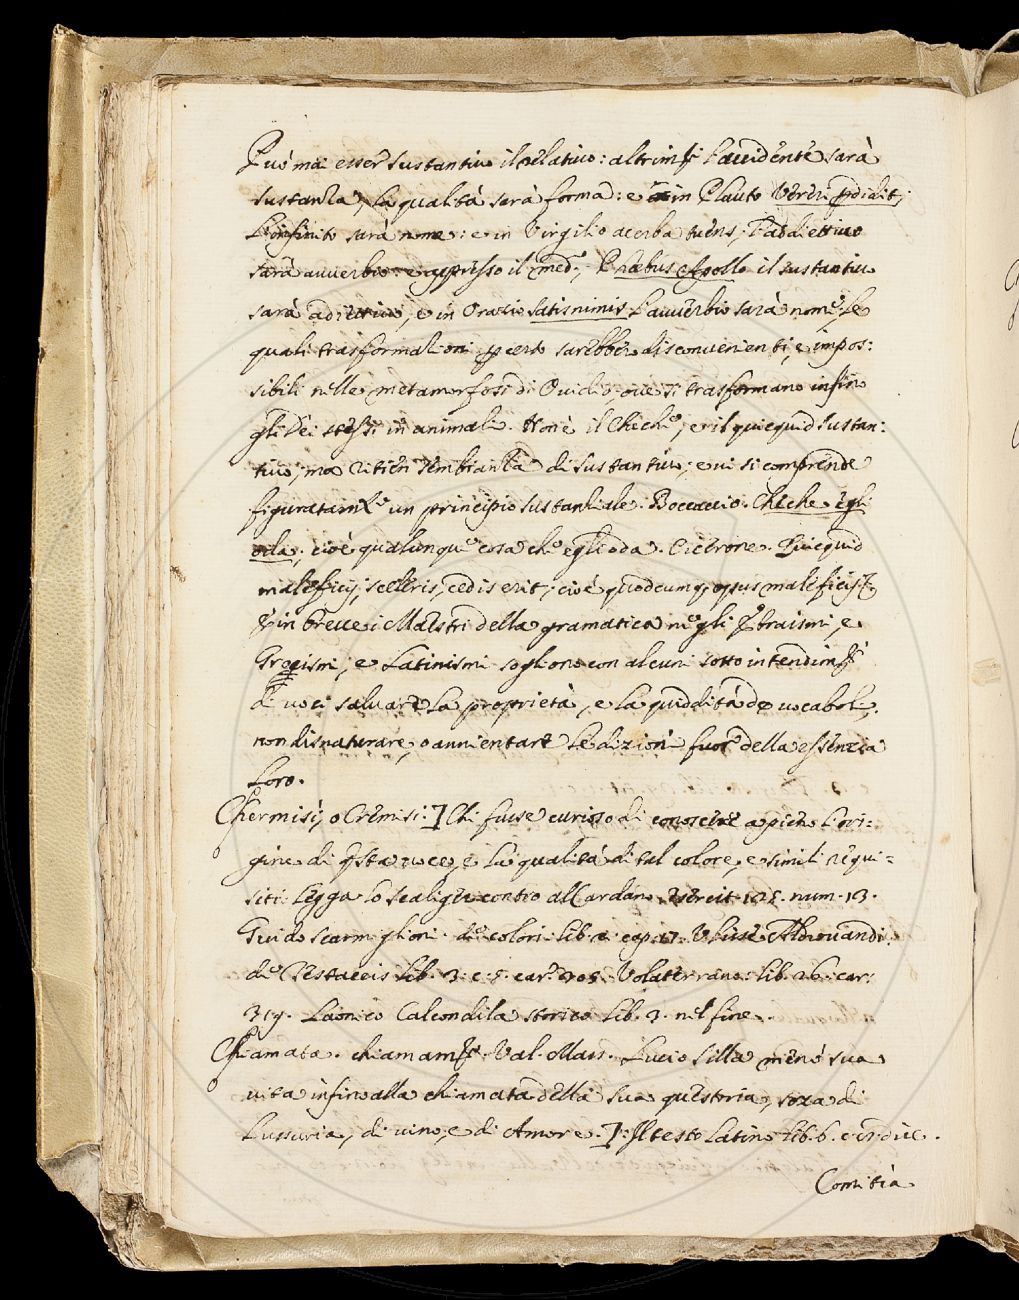 Può mai esser sustantiuo il relatiuo: altrim.ti l'accidente sarà
sustanza, la qualità sarà forma: e in Plauto Vereri perdidit,
l'infinito sarà nome: e in Virgilio acerba tuens, l'addiettiuo
sarà auuerbio: e appresso il med.o, Phœbus Apollo il sustantiuo
sarà adiettiuo, e in Orazio satis nimis l'auuerbio sarà nome, le
quali trasformazioni per certo sarebber disconuenienti, e impos:
sibili nelle metamorfosi di Ouidio, oue si trasformano infino
gli Dei stessi in animali. Non è il Chiche, e il quicquid sustan:
tiuo, ma ritien sembianza di sustantiuo, e ui si comprende
figuratam.te un principio sustanziale. Boccaccio. Chiche egli
oda, cioè qualunque cosa che egli oda. Cicerone. Quicquid
maleficij, sceleris, cedis erit, cioè quodcumq; opus maleficij &
in breue i Maestri della gramatica negli Ebraismi, e
Grecismi, e Latinismi sogliono con alcuni sotto intendim.ti
di uoci saluare la proprietà, e la quiddità de uocaboli,
non disnaturare, o annientare le dizioni fuor della essenzia
loro.
Chermisi, o Cremisi:] Chi fusse curioso di conoscere a pieno l'ori:
gine di q.sta uoce, e la qualità di tal colore, e simili requi=
siti: legga lo Scaligero contro al Cardano, esercit. 125. num. 13.
Guido Scarmiglioni de colori. lib. 2. cap. 17. Ulisse Aldrouandi
de Testaceis lib. 3. c. 5. car. 205. Volaterrano: lib. 26. car:
319. Laonico Calcondila storico lib. 3. nel fine.
Chiamata. chiamam.to. Val. Mass. Lucio Silla menò sua
uita infino alla chiamata della sua questoria, soza di
lussuria, di uino, e di Amore.]: Il testo Latino lib. 6. c.
Comitia